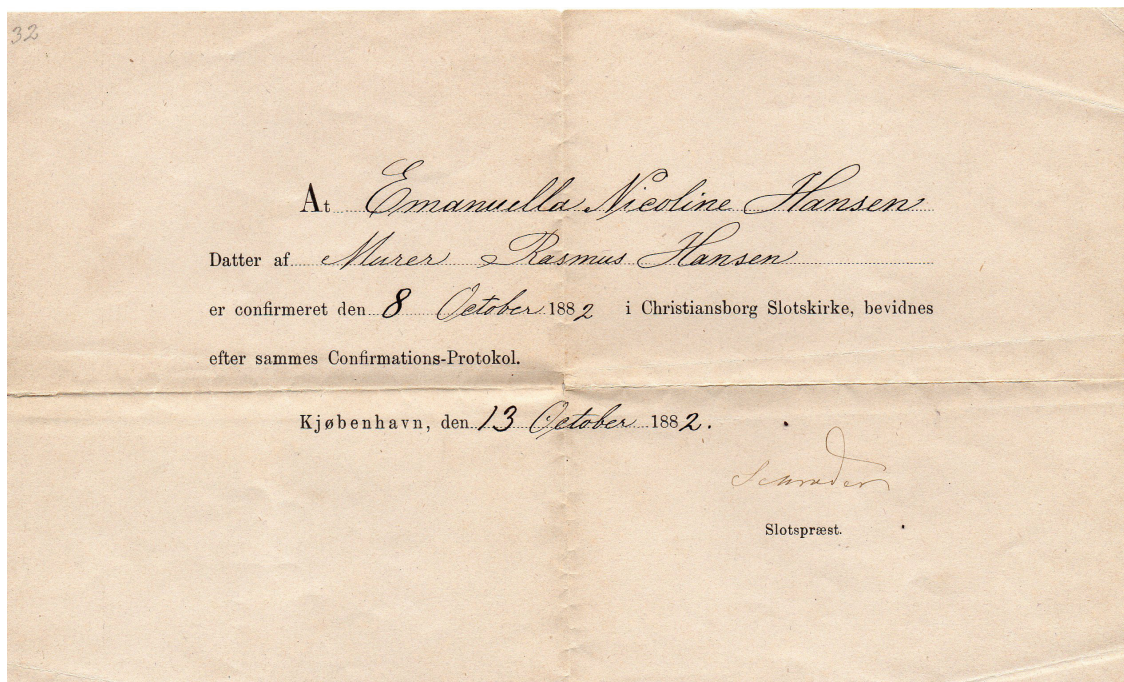 32
At Emanuella Nicoline Hansen
Datter af Murer Rasmus Hansen
er confirmeret den 8 October 1882 i Christiansborg Slotskirke, bevidnes
efter sammes Confirmations-Protokol.
Kjøbenhavn, den 13 October 1882.
Slotspræst.